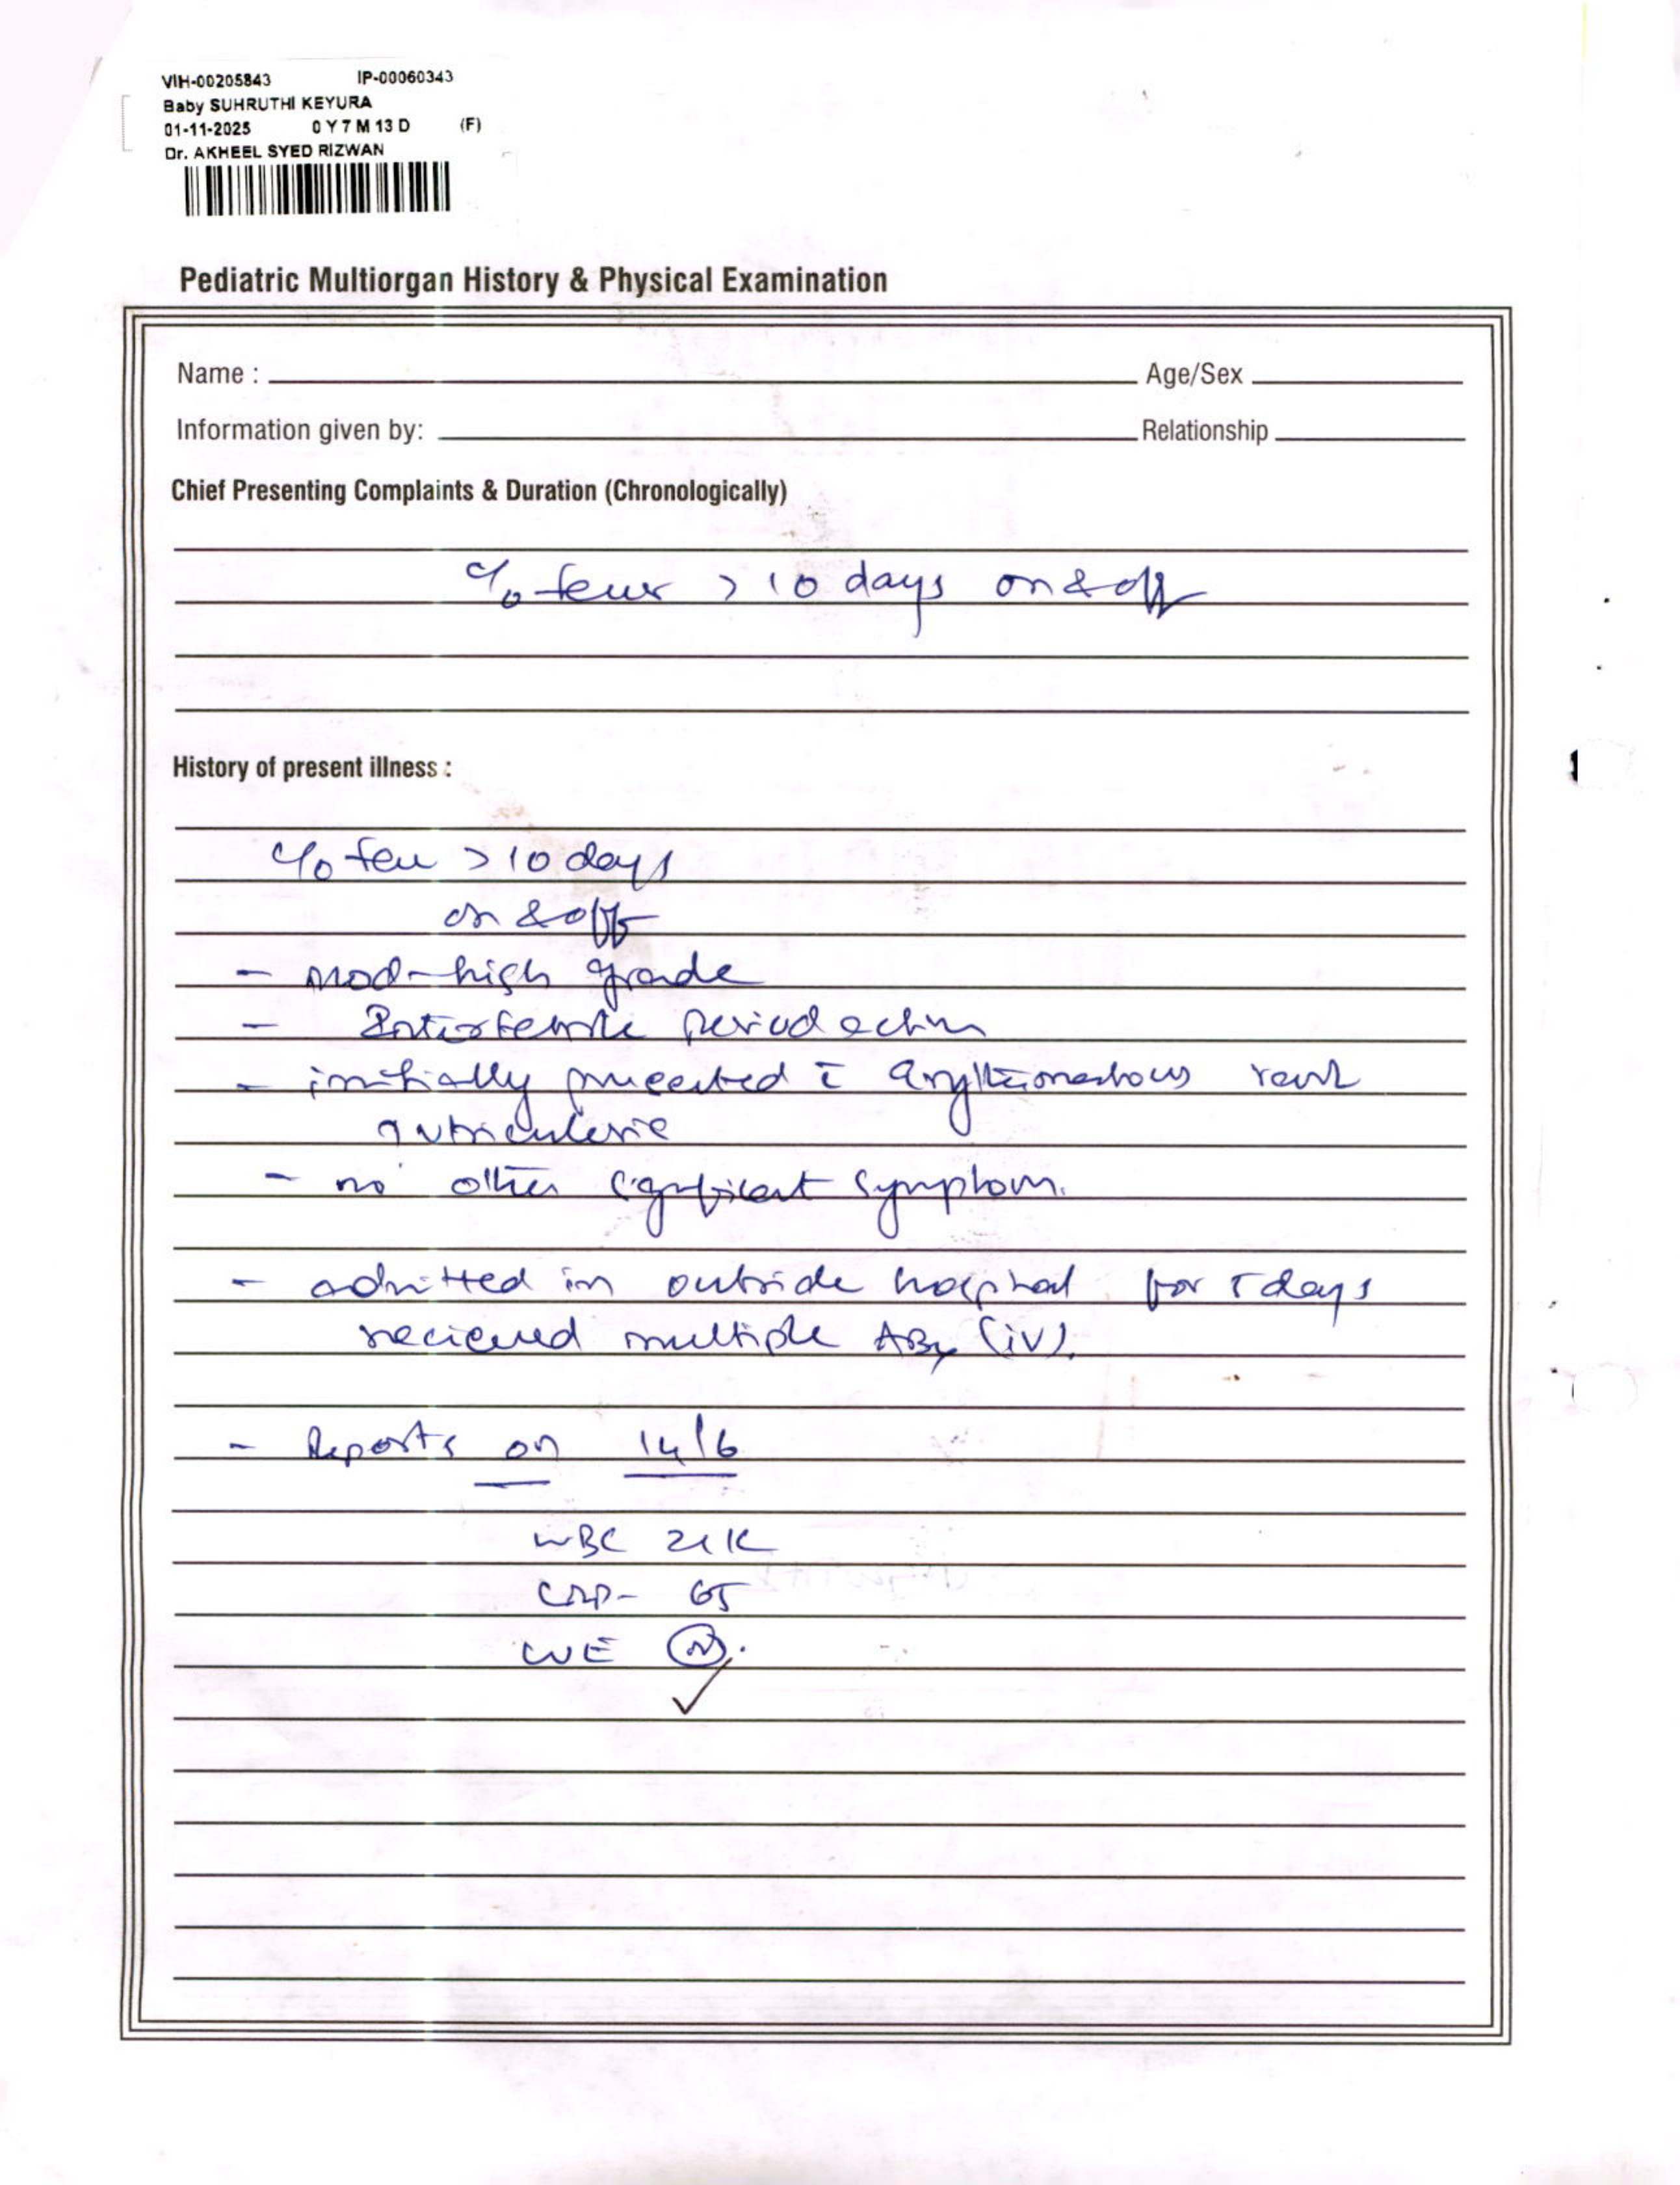 VIH-00205843 IP-00060343
Baby SUHRUTHI KEYURA
01-11-2025 0 Y 7 M 13 D (F)
Dr. AKHEEL SYED RIZWAN
Pediatric Multiorgan History & Physical Examination
Name : Age/Sex
Information given by: Relationship
Chief Presenting Complaints & Duration (Chronologically)
c/o fever > 10 days on & off
History of present illness :
c/o fever > 10 days
on & off
- mod-high grade
- Interfebrile period active
- initially presented c̄ rash
- no other significant symptom.
- admitted in outside hospital for 5 days
recieved multiple ABx (iv).
- Reports on 14/6
WBC 21K
CRP- 65
CUE (N).